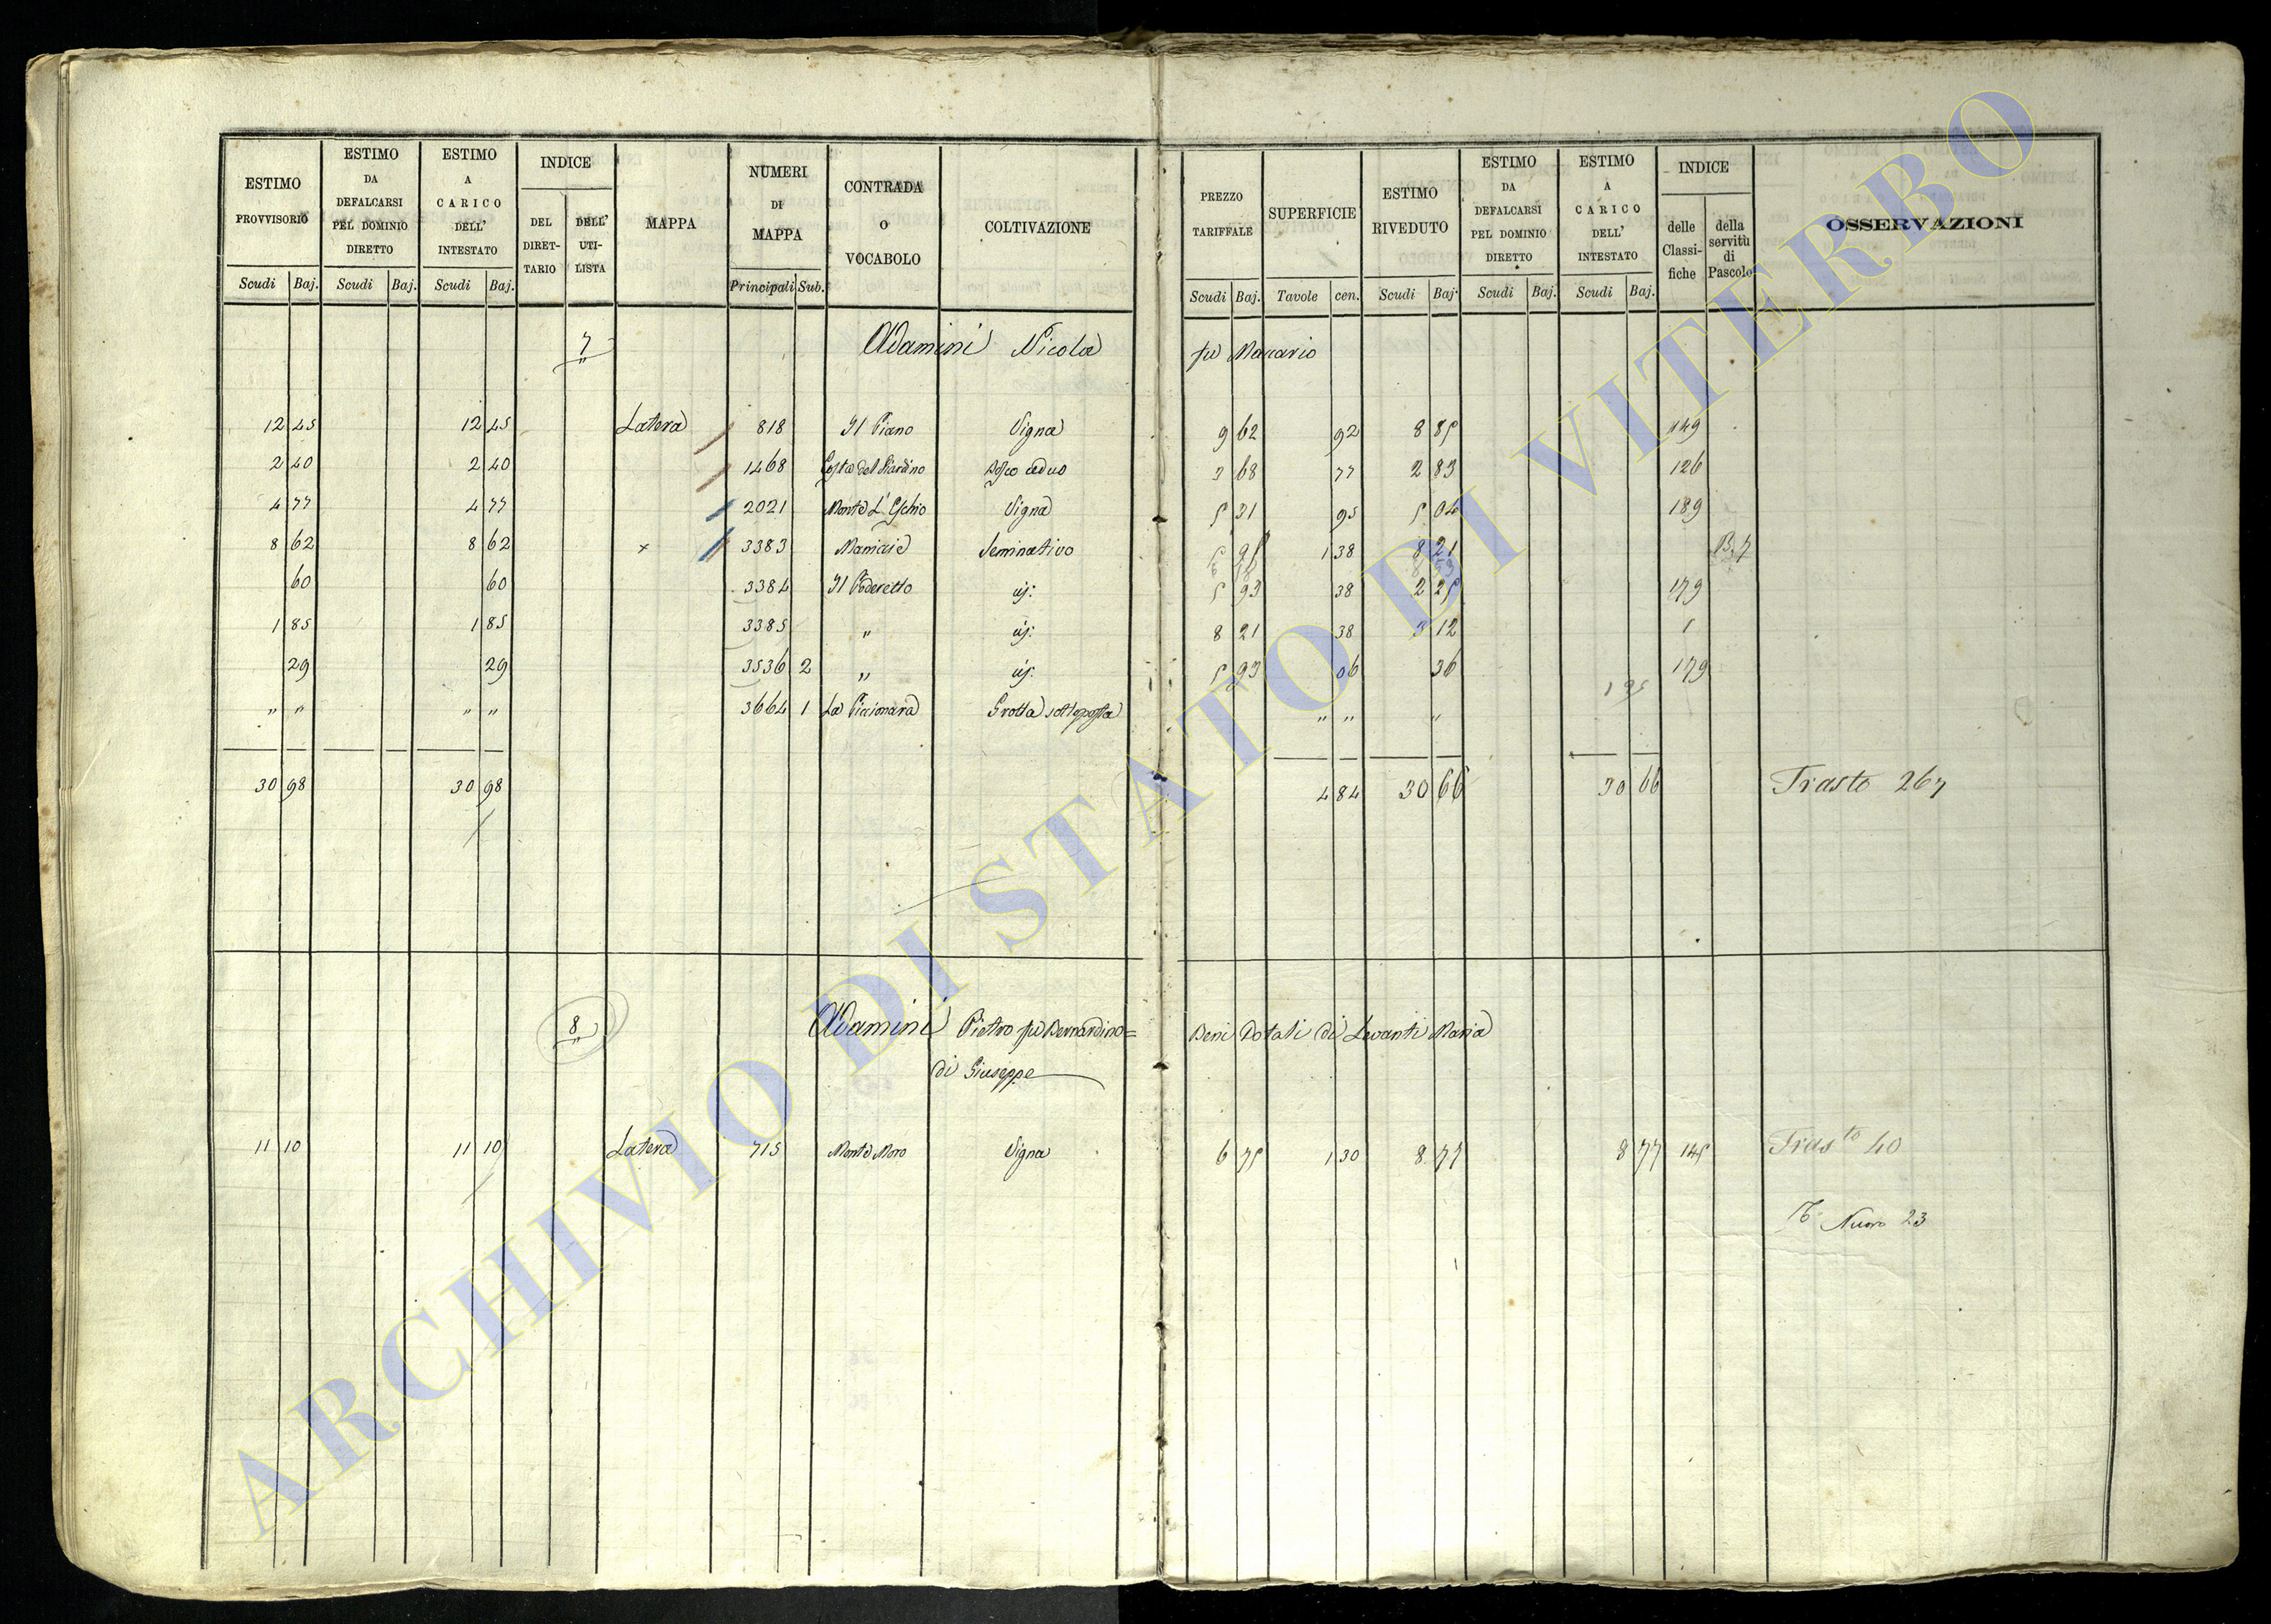 ESTIMO PROVVISORIO Scudi Baj. ESTIMO DA DEFALCARSI PEL DOMINIO DIRETTO Scudi Baj. ESTIMO A CARICO DELL' INTESTATO Scudi Baj. INDICE DEL DIRET-TARIO DELL' UTI-LISTA MAPPA NUMERI DI MAPPA Principali Sub. CONTRADA O VOCABOLO COLTIVAZIONE PREZZO TARIFFALE Scudi Baj. SUPERFICIE Tavole cen. ESTIMO RIVEDUTO Scudi Baj. ESTIMO DA DEFALCARSI PEL DOMINIO DIRETTO Scudi Baj. ESTIMO A CARICO DELL' INTESTATO Scudi Baj. INDICE delle Classi-fiche della servitù di Pascolo OSSERVAZIONI
7 Adamini Nicola fu Macario
12 45 12 45 Latera 818 Il Piano Vigna 9 62 92 8 85 149
2 40 2 40 1468 Costa del Giardino Bosco ceduo 3 68 77 2 83 126
4 77 4 77 2021 Monte L'Eschio Vigna 5 31 95 5 04 189
8 62 8 62 × 3383 Seminativo 5 95 1 38 8 21 B. 7
60 60 3384 Il Poderetto id. 5 93 38 2 25 179
1 85 1 85 3385 " id. 8 21 38 3 12 1
29 29 3536 2 " id. 5 93 06 36 179
" " " " 3664 1 La Piccionara Grotta sottoposta " " " 1 95
30 98 30 98 4 84 30 66 30 66 Trasto 267
8 Adamini Pietro fu Bernardino = Beni Dotali di Levanti Maria
di Giuseppe
11 10 11 10 Latera 715 Monte Moro Vigna 6 75 1 30 8 77 8 77 145 Trasto 40
Nuovo 23
ARCHIVIO DI STATO DI VITERBO